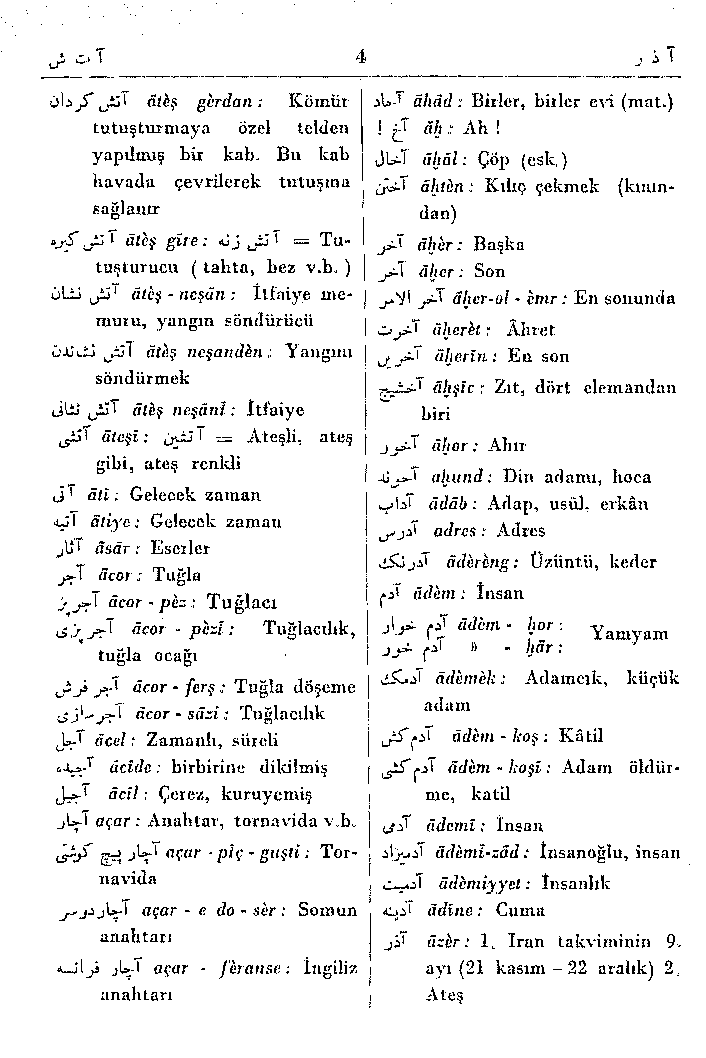 آ ت ش
4
آ ذ ر
آتش گردان âtèş gèrdan : Kömür
tutuşturmaya özel telden
yapılmış bir kab. Bu kab
havada çevrilerek tutuşma
sağlanır
آتش گیره âtèş gîre : آتش زنه = Tu-
tuşturucu ( tahta, bez v.b. )
آتش نشان âtèş - neşân : İtfaiye me-
muru, yangın söndürücü
آتش نشاندن âtèş neşandèn : Yangını
söndürmek
آتش نشانی âtèş neşânî : İtfaiye
آتشی âteşî : آتشین = Ateşli, ateş
gibi, ateş renkli
آتی âtî : Gelecek zaman
آتیه âtiye : Gelecek zaman
آثار âsâr : Eserler
آجر âcor : Tuğla
آجرپز âcor - pèz : Tuğlacı
آجرپزی âcor - pèzî : Tuğlacılık,
tuğla ocağı
آجر فرش âcor - ferş : Tuğla döşeme
آجرسازی âcor - sâzi : Tuğlacılık
آجل âcel : Zamanlı, süreli
آجیده âcîde : birbirine dikilmiş
آجیل âcîl : Çerez, kuruyemiş
آچار açar : Anahtar, tornavida v.b.
آچار پیچ گوشتی açar - pîç - guşti : Tor-
navida
آچاردوسر açar - e do - sèr : Somun
anahtarı
آچار فرانسه açar - fèranse : İngiliz
anahtarı
آحاد âhâd : Birler, birler evi (mat.)
آخ ! âh : Ah !
آخال âhâl : Çöp (esk.)
آختن âhtèn : Kılıç çekmek (kının-
dan)
آخر âhèr : Başka
آخر âher : Son
آخر الامر âher-ol - èmr : En sonunda
آخرت âherèt : Âhret
آخرین âherîn : En son
آخشیج âhşîc : Zıt, dört elemandan
biri
آخور âhor : Ahır
آخوند ahund : Din adamı, hoca
آداب âdâb : Adap, usül, erkân
آدرس adres : Adres
آدرنگ âdèrèng : Üzüntü, keder
آدم âdèm : İnsan
آدم خوار âdèm - hor : Yamyam
آدم خور » - hâr :
آدمک âdèmèk : Adamcık, küçük
adam
آدم‌کش âdèm - koş : Kâtil
آدم‌کشی âdèm - koşî : Adam öldür-
me, katil
آدمی âdemî : İnsan
آدمیزاد âdèmî-zâd : İnsanoğlu, insan
آدمیت âdèmiyyet : İnsanlık
آدینه âdîne : Cuma
آذر âzèr : 1. İran takviminin 9.
ayı (21 kasım – 22 aralık) 2.
Ateş